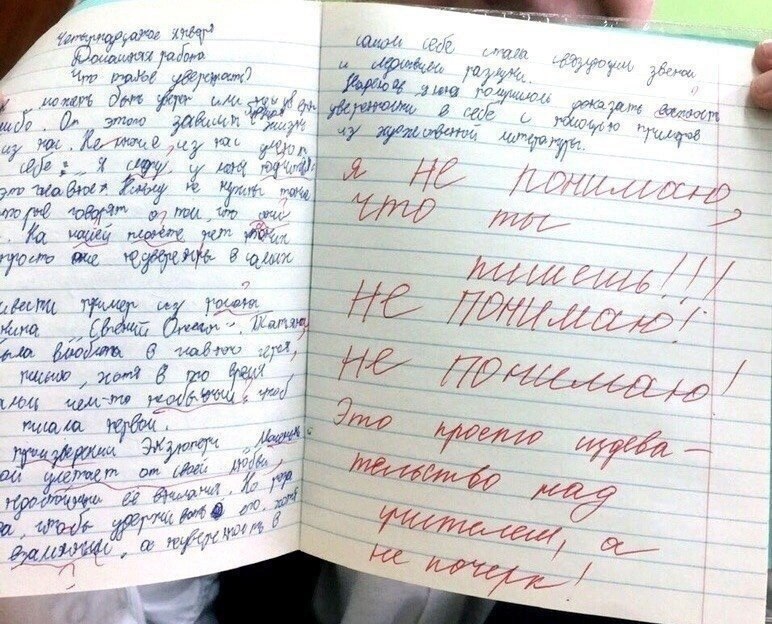 Четырнадцатое января
Домашняя работа
Что такое уверенность?
может быть уверен или не уверен
либо. От этого зависит жизнь
из нас. Не многие из нас умеют
себе: "Я сижу, у меня
это главное. Никому не нужны такие
торые говорят о том, что они
. На нашей планете нет таких
просто не уверены в самих
ивести пример из романа
"Евгений Онегин". Татьяна
ыла влюблена в главного героя,
письмо, хотя в то время
чем-то необычным, чтоб
писала первой.
произведении Экзюпери "Маленький
ой улетает от своей любви,
ее внимания. Но роза
а, чтобы удерживать его, хотя
взаимный, а неуверенность в
самой себе стала связующим звеном
и разлуки.
Надеюсь, у меня получилось доказать важность
уверенности в себе с помощью примеров
из художественной литературы.
Я не понимаю,
что ты
пишешь!!!
Не понимаю!
Не понимаю!
Это просто издева-
тельство над
учителем, а
не почерк!